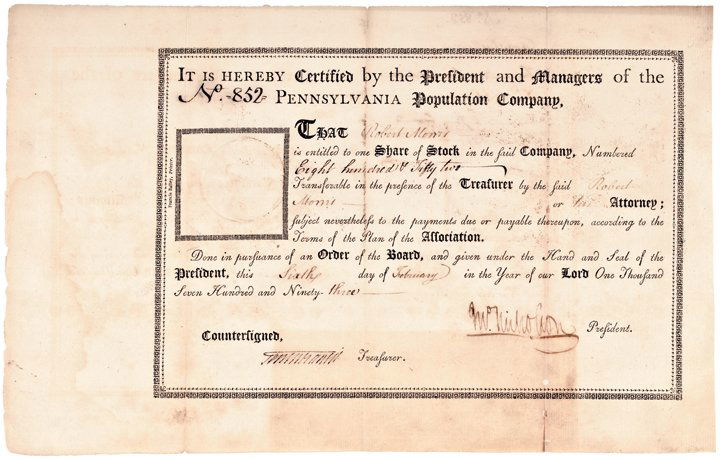 IT IS HEREBY Certified by the President and Managers of the
No. 852 PENNSYLVANIA Population Company,
THAT Robert Morris
is entitled to one Share of Stock in the said Company, Numbered
Eight hundred & Fifty two
Transferable in the presence of the Treasurer by the said Robert
Morris or his Attorney;
subject nevertheless to the payments due or payable thereupon, according to the
Terms of the Plan of the Association.
Done in pursuance of an Order of the Board, and given under the Hand and Seal of the
President, this Sixth day of February in the Year of our Lord One Thousand
Seven Hundred and Ninety-three
Jno. Nicholson President.
Countersigned,
Treasurer.
Francis Bailey, Printer.